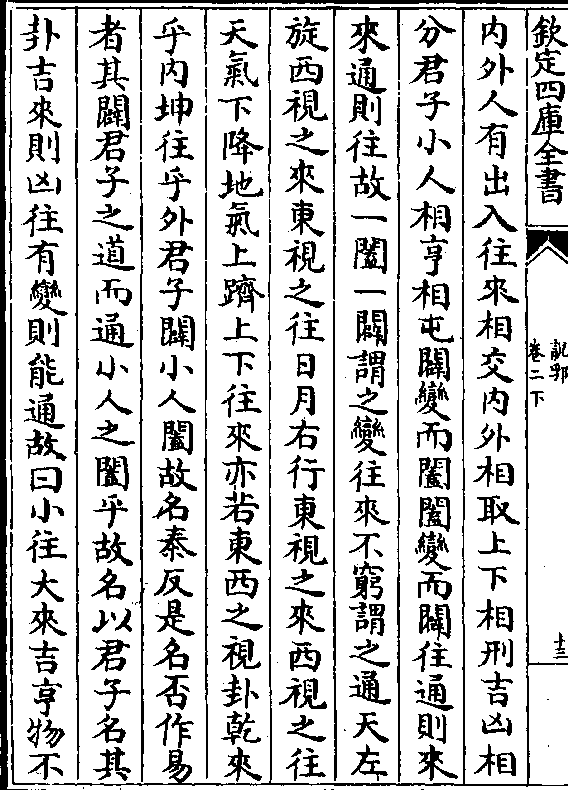 欽定四庫全書
說郛
卷二下
十三
內外人有出入往來相交內外相取上下相刑吉凶相
分君子小人相亨相屯闢變而闔闔變而闢往通則來
來通則往故一闔一闢謂之變往來不窮謂之通天左
旋西視之來東視之往日月右行東視之來西視之往
天氣下降地氣上躋上下往來亦若東西之視卦乾來
乎內坤往乎外君子闢小人闔故名泰反是名否作易
者其闢君子之道而通小人之闔乎故名以君子名其
卦吉來則凶往有變則能通故曰小往大來吉亨物不